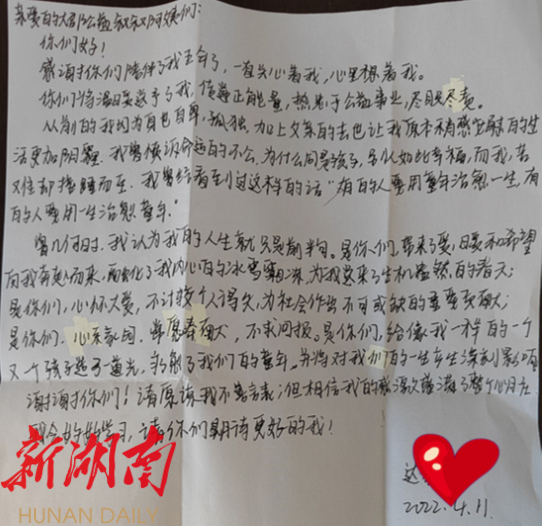 亲爱的大部公益叔叔阿姨们：
你们好！
感谢你们陪伴了我五年了，一直关心着我，心里想着我。
你们将温暖送予了我，传递正能量，热衷于公益事业，尽职尽责。
从前的我因为自己自卑，孤独，加上父亲的去世让我原本有感觉昧的生
活更加阴霾。我曾恨该命运的不公，为什么同是孩子，别人如此幸福，而我，苦
难却接踵而至。我曾经看到过这样的话“有的人要用童年治愈一生，有
的人要用一生治愈童年。”
曾几何时，我认为我的人生就只是前半句。是你们，带来了爱，暖和希望
向我奔赴而来，融化了我内心的冰雪，为我迎来了生机盎然的春天；
是你们，心怀大爱，不计较个人得失，为社会作出不可或缺的重要贡献；
是你们，心系家园，愿奉献，不求回报。是你们，给像我一样的一个
又一个孩子一道光，我们的童年，并将对我们的一生产生深刻影响
谢谢你们！请原谅我不善言表；但相信我的感激之情溢满了整个心房
我会好好学习，请你们期待更好的我！
2022.4.11.
新湖南
HUNAN DAILY